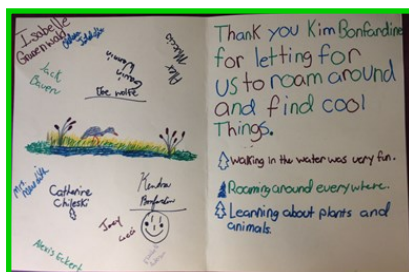 Isabelle
Gruenwald
Jack
Bauen
Alex
Zoe Wolfe
Mrs.
Catherine
Chileski
Kendra
Bonfardin
Joey
Alexis Eckert
Thank you Kim Bonfardine
for letting for
us to roam around
and find cool
Things.
Walking in the water was very fun.
Roaming around everywhere.
Learning about plants and
animals.